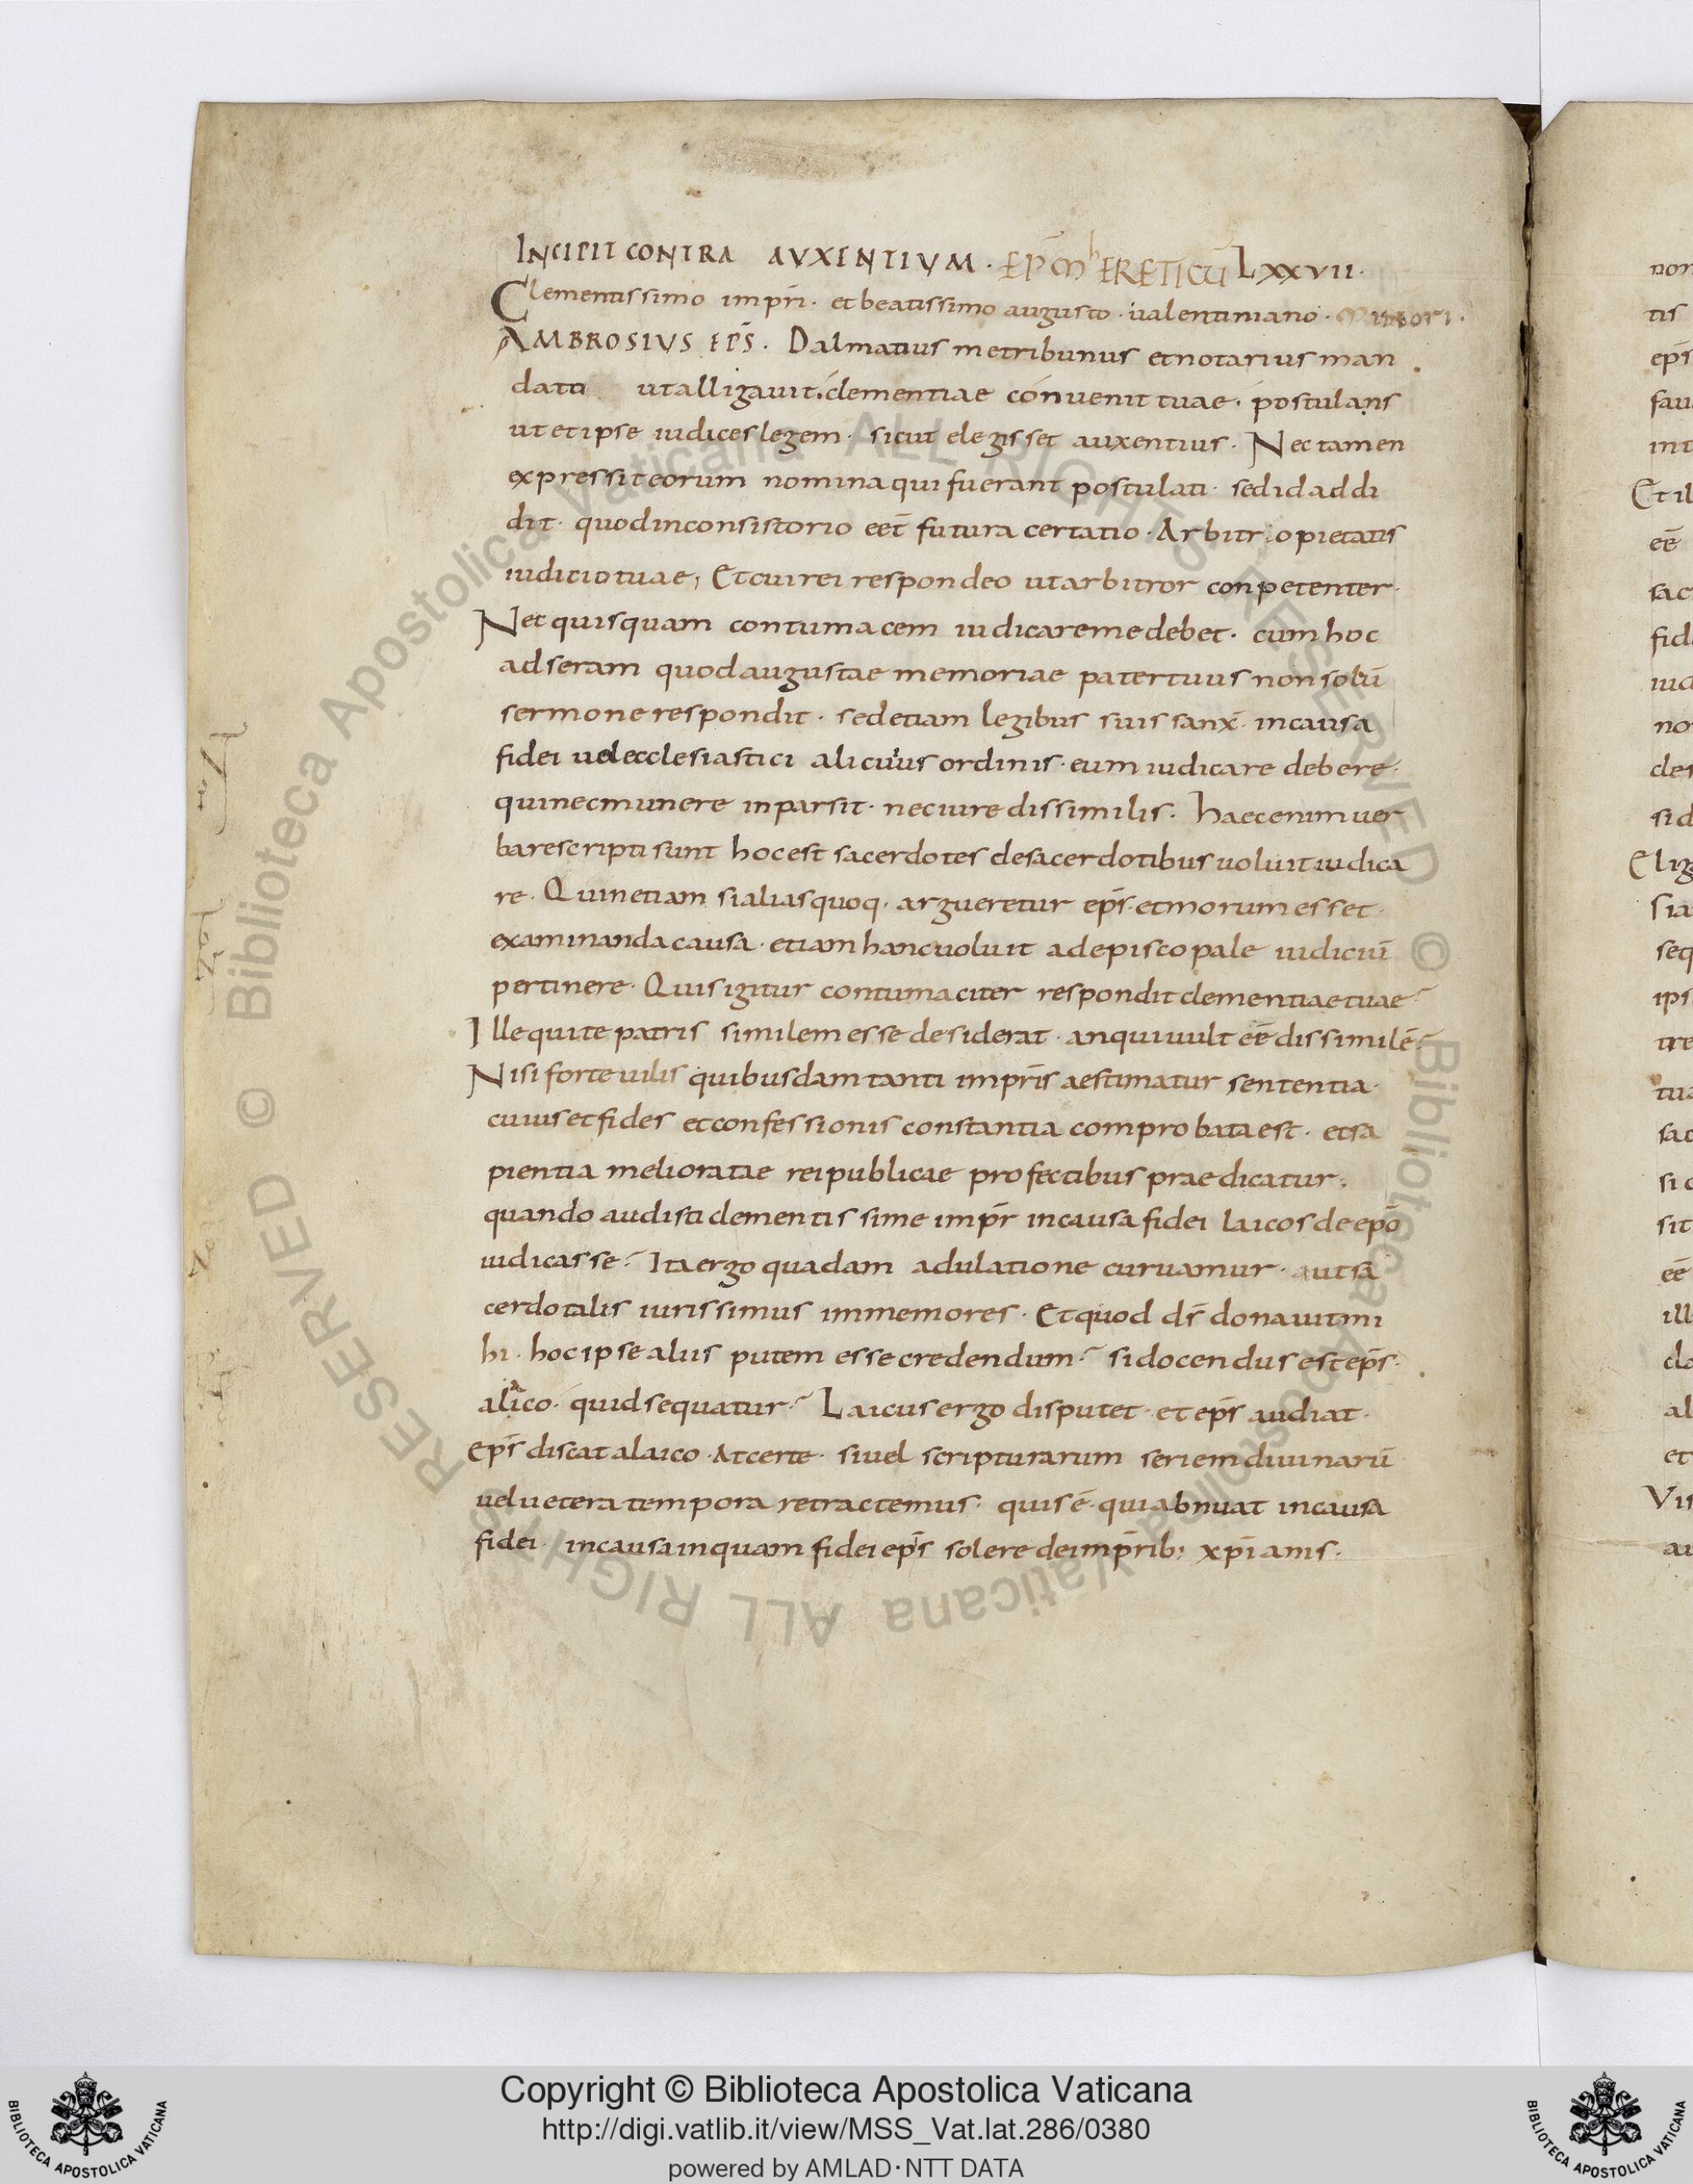 INCIPIT CONTRA AVXENTIVM · EP̄M hERETICŪ LXXVII ·
Clementissimo imp̄ri · et beatissimo augusto · ualentiniano ·
AMBROSIVS EP̄S · Dalmatius me tribunus et notarius man
dato ut alligauit · clementiae conuenit tuae · postulans
ut et ipse iudices legem · sicut elegisset auxentius · Nec tamen
expressit eorum nomina qui fuerant postulati · sed id addi
dit · quod in consistorio eēt futura certatio · Arbitrio pietatis
iudicio tuae ; Et cui rei respondeo ut arbitror conpetenter ·
Nec quisquam contumacem iudicare me debet · cum hoc
adseram quod augustae memoriae pater tuus non solū
sermone respondit · sed etiam legibus suis sanx̄ · in causa
fidei uel ecclesiastici alicuius ordinis · eum iudicare debere ·
qui nec munere inpar sit · nec iure dissimilis · haec enim uer
ba rescripti sunt hoc est sacerdotes de sacerdotibus uoluit iudica
re · Quin etiam si alias quoq · argueretur ep̄s · et morum esset ·
examinanda causa · etiam hanc uoluit ad episcopale iudiciū
pertinere · Quis igitur contumaciter respondit clementiae tuae ?
Ille qui te patris similem esse desiderat · an qui uult eē dissimilē ?
Nisi forte uilis quibusdam tanti imp̄ris aestimatur sententia ·
cuius et fides et confessionis constantia comprobata est · et sa
pientia melioratae reipublicae profectibus praedicatur ·
quando audisti clementissime imp̄r in causa fidei laicos de ep̄o
iudicasse ? Ita ergo quadam adulatione curuamur · aut sa
cerdotalis iuris simus immemores · Et quod d̄s donauit mi
hi · hoc ipse aliis putem esse credendum ? si docendus est ep̄s ·
a laico · quid sequatur ? Laicus ergo disputet · et ep̄s audiat ·
ep̄s discat a laico · At certe · si uel scripturarum seriem diuinarū
uel uetera tempora retractemus · quis ē · qui abnuat in causa
fidei · in causa inquam fidei ep̄s solere de imp̄rib; xp̄ianis ·
non
tis
ep̄s
fau
int
Et il
eē
sac
fid
iud
no
cles
si d
Elig
sia
seq
ips
tre
tua
sac
si c
sit
eē
ill
cla
al
et
Vis
au
© Biblioteca Apostolica Vaticana ALL RIGHTS RESERVED © Biblioteca Apostolica Vaticana ALL RIGHTS RESERVED
Copyright © Biblioteca Apostolica Vaticana
http://digi.vatlib.it/view/MSS_Vat.lat.286/0380
powered by AMLAD·NTT DATA
BIBLIOTECA APOSTOLICA VATICANA
BIBLIOTECA APOSTOLICA VATICANA